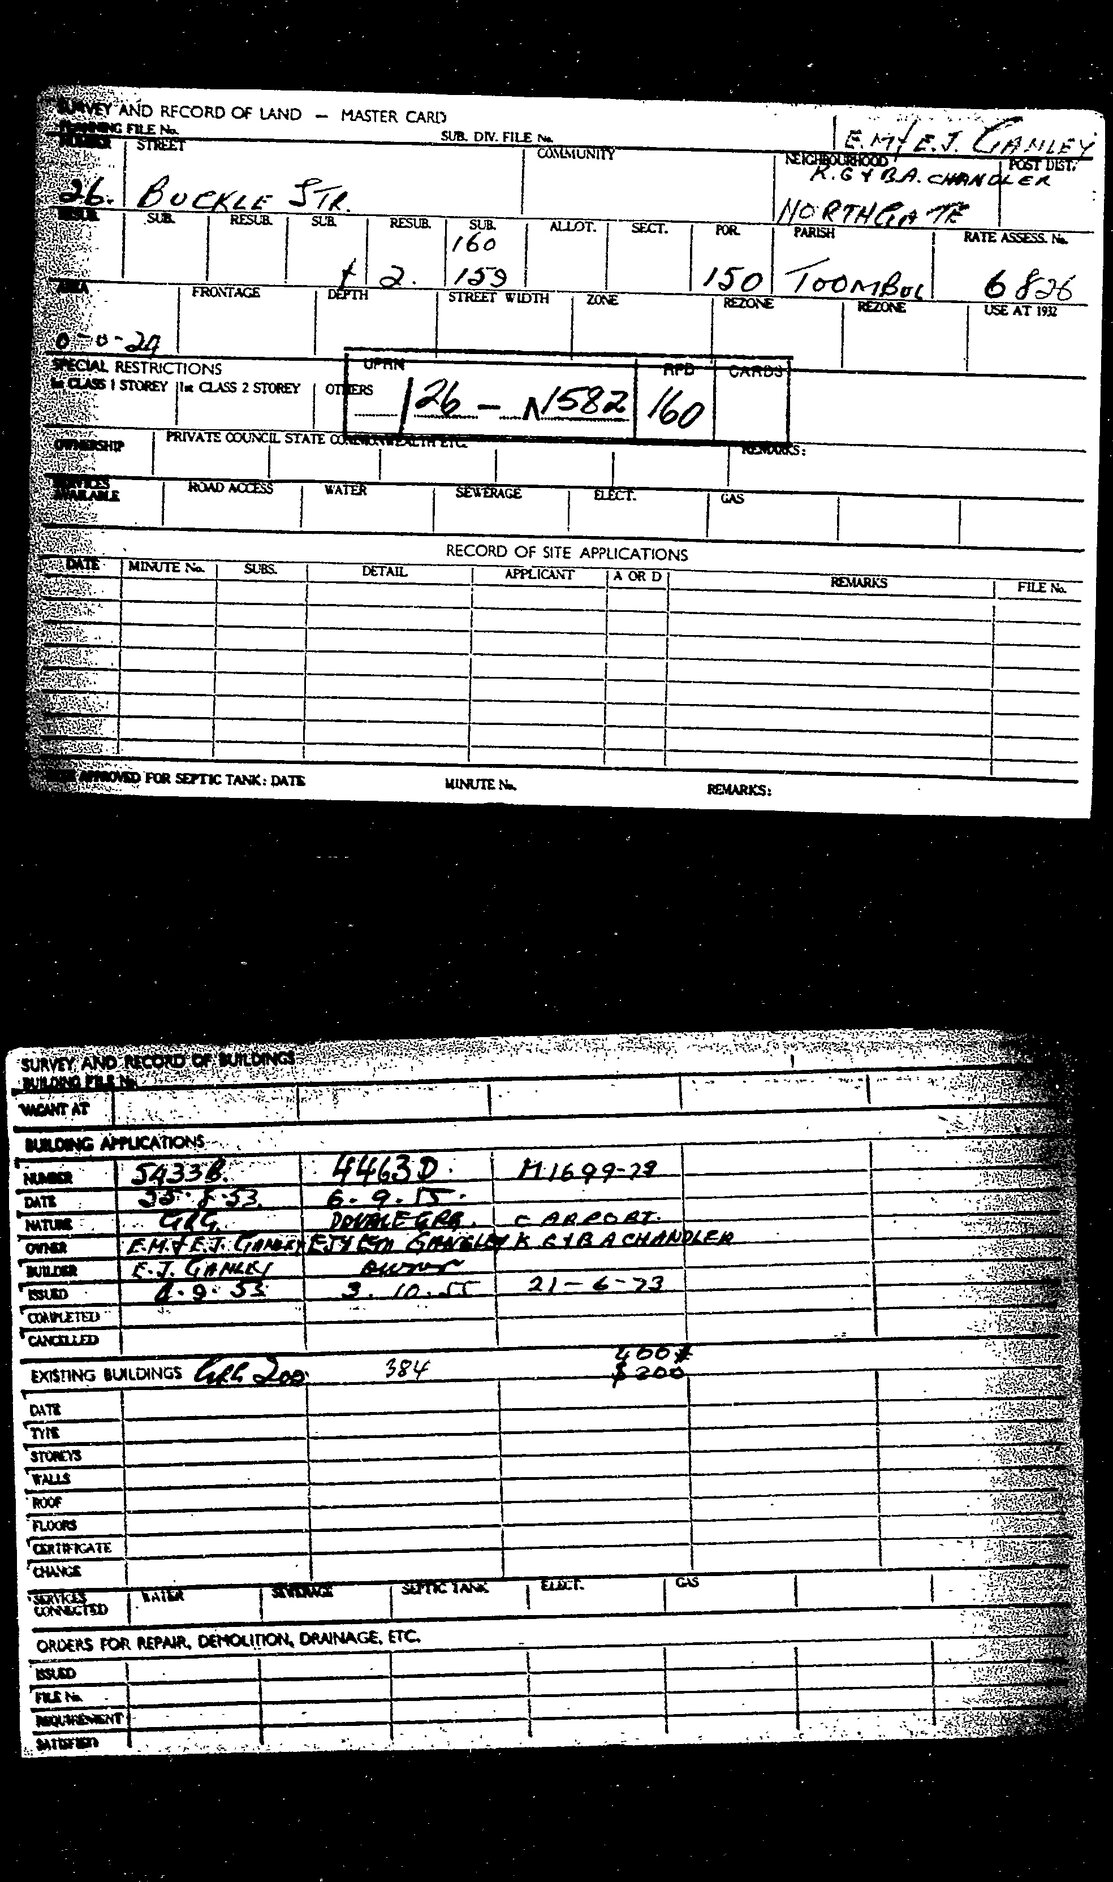 SURVEY AND RECORD OF LAND — MASTER CARD
PLANNING FILE No. SUB. DIV. FILE No. E.M & E.J. GANLEY
NUMBER STREET COMMUNITY NEIGHBOURHOOD POST DIST.
K.G & B.A. CHANDLER
26. BUCKLE STR. NORTHGATE
RESUB. SUB. RESUB. SUB. RESUB. SUB. ALLOT. SECT. POR. PARISH RATE ASSESS. No.
160
2. 159 150 TOOMBUL 6826
AREA FRONTAGE DEPTH STREET WIDTH ZONE REZONE REZONE USE AT 1932
0-0-24
SPECIAL RESTRICTIONS UPRN RPD CARDS
1st CLASS 1 STOREY 1st CLASS 2 STOREY OTHERS
/26 - N1582 160
OWNERSHIP PRIVATE COUNCIL STATE COMMONWEALTH ETC. REMARKS:
SERVICES AVAILABLE ROAD ACCESS WATER SEWERAGE ELECT. GAS
RECORD OF SITE APPLICATIONS
DATE MINUTE No. SUBS. DETAIL APPLICANT A OR D REMARKS FILE No.
APPROVED FOR SEPTIC TANK: DATE MINUTE No. REMARKS:
SURVEY AND RECORD OF BUILDINGS
BUILDING FILE No.
VACANT AT
BUILDING APPLICATIONS
NUMBER 5433B. 4463D. M1699-
DATE 53. 6.9.55.
NATURE GRG. DOUBLE GRG. CARPORT.
OWNER E.M. & E.J. GANLEY E.J & E.M GANGLEY K G & B A CHANDLER
BUILDER E.J. GANLEY owner
ISSUED 4.9.53. 3.10.55 21-6-73
COMPLETED
CANCELLED
400
EXISTING BUILDINGS GRG 200. 384 $200
DATE
TYPE
STOREYS
WALLS
ROOF
FLOORS
CERTIFICATE
CHANGE
SERVICES CONNECTED WATER SEWERAGE SEPTIC TANK ELECT. GAS
ORDERS FOR REPAIR, DEMOLITION, DRAINAGE, ETC.
ISSUED
FILE No.
REQUIREMENT
SATISFIED